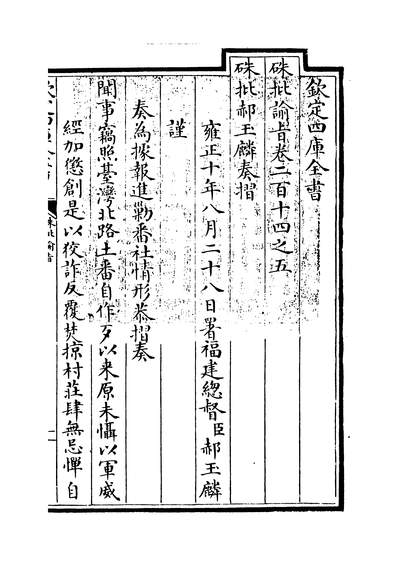 欽定四庫全書
硃批諭旨卷二百十四之五
硃批郝玉麟奏摺
雍正十年八月二十八日署福建總督臣郝玉麟
謹
奏為據報進勦番社情形恭摺奏
聞事竊照臺灣北路土番自作歹以來原未懾以軍威
經加懲創是以狡詐反覆焚掠村莊肆無忌憚自